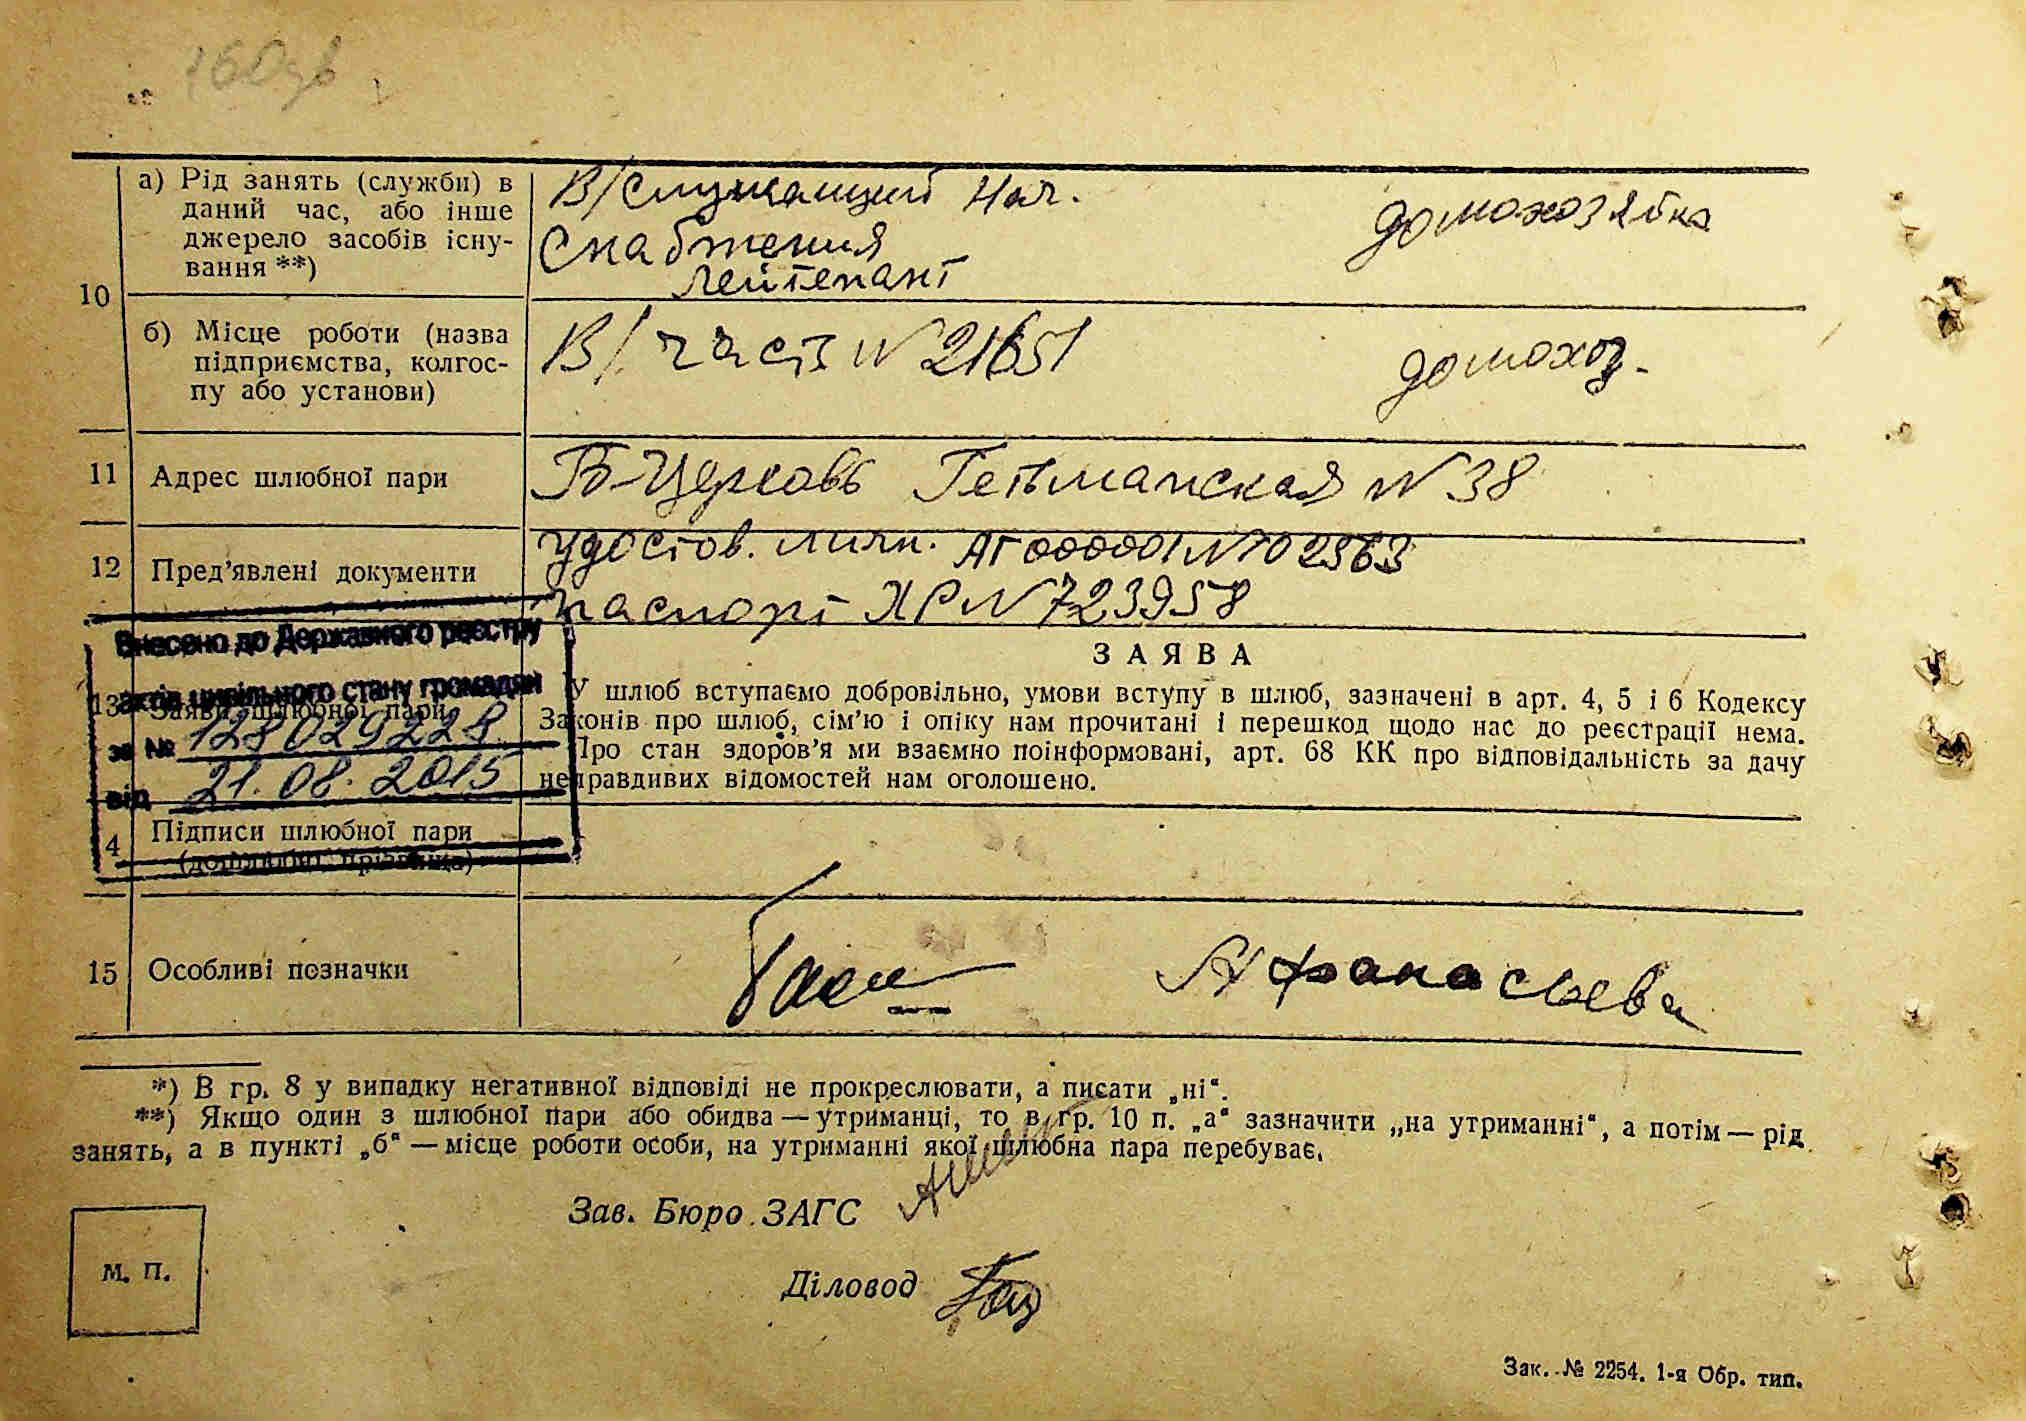 а) Рід занять (служби) в
даний час, або інше
джерело засобів існу-
вання **)
В/Служащий Нач.
Снабжения
лейтенант
домохозяйка
10
б) Місце роботи (назва
підприємства, колгос-
пу або установи)
В/часть N 21651
домохоз.
11 Адрес шлюбної пари
Б-Церковь Гетьманская N 38
12 Пред’явлені документи
удостов. личн. АГ 000001 N 102363
паспорт ХР N 723958
Внесено до Державного реєстру
актів цивільного стану громадян
за № 128029228
від 21.08.2015
13 Заява шлюбної пари
ЗАЯВА
У шлюб вступаємо добровільно, умови вступу в шлюб, зазначені в арт. 4, 5 і 6 Кодексу
Законів про шлюб, сім’ю і опіку нам прочитані і перешкод щодо нас до реєстрації нема.
Про стан здоров’я ми взаємно поінформовані, арт. 68 КК про відповідальність за дачу
неправдивих відомостей нам оголошено.
4 Підписи шлюбної пари
(дошлюбні прізвища)
15 Особливі позначки
Афанасьева
*) В гр. 8 у випадку негативної відповіді не прокреслювати, а писати „ні“.
**) Якщо один з шлюбної пари або обидва — утриманці, то в гр. 10 п. „а“ зазначити „на утриманні“, а потім — рід
занять, а в пункті „б“ — місце роботи особи, на утриманні якої шлюбна пара перебуває.
Зав. Бюро ЗАГС
М. П.
Діловод
Зак. № 2254. 1-я Обр. тип.